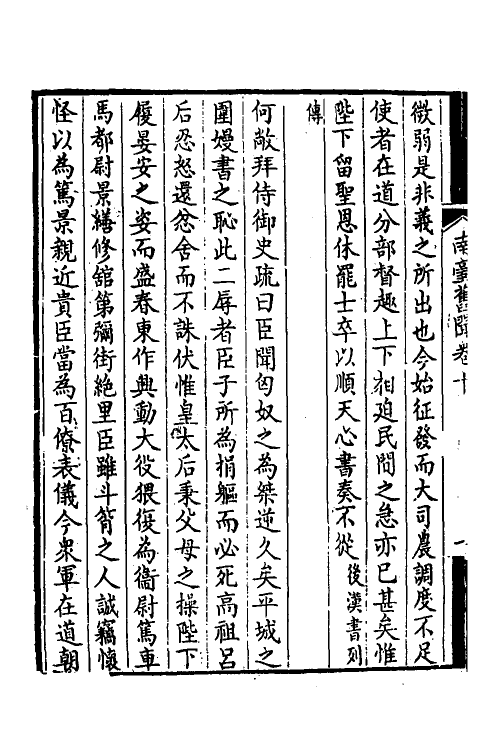 微弱是非義之所出也今始征發而大司農調度不足
使者在道分部督趣上下相迫民間之急亦已甚矣惟
陛下留聖恩休罷士卒以順天心書奏不從後漢書列
傳
何敞拜侍御史疏曰臣聞匈奴之為桀逆久矣平城之
圍嫚書之恥此二辱者臣子所為捐軀而必死高祖呂
后忍怒還忿舍而不誅伏惟皇太后秉父母之操陛下
履晏安之姿而盛春東作興動大役猥復為衞尉篤車
馬都尉景繕修舘第彌街絶里臣雖斗筲之人誠竊懷
怪以為篤景親近貴臣當為百僚表儀今衆軍在道朝
舊聞卷十
一